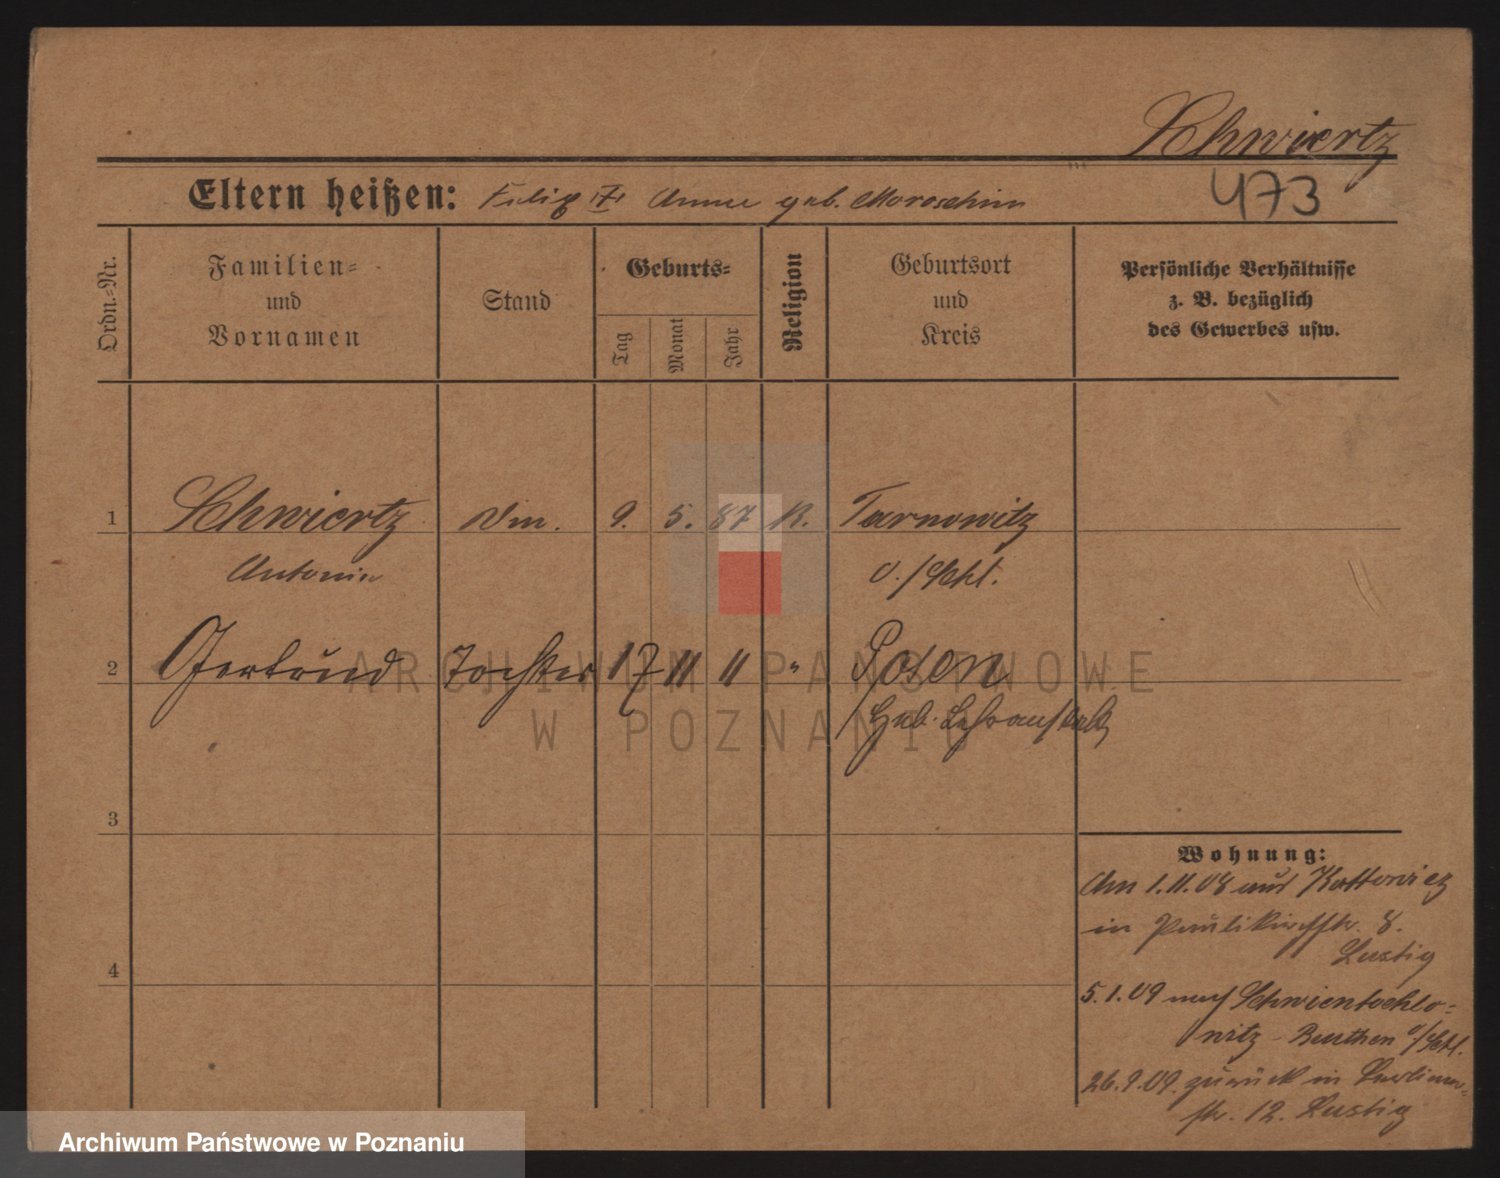 Schwiertz
Eltern heißen: Filip Anna geb. Moroschin
473
Ordn.=Nr.
Familien=
und
Vornamen
Stand
Geburts=
Tag
Monat
Jahr
Religion
Geburtsort
und
Kreis
Persönliche Verhältnisse
z. B. bezüglich
des Gewerbes usw.
1 Schwiertz Dm. 9. 5. 87 K. Tarnowitz
Antonie O./Schl.
2 Gertrud Tochter 17 11 11 " Posen
Geb. Lehranstalt
3
4
Wohnung:
Am 1.11.08 aus Kattowicz
in Paulikirchstr. 8.
Lustig
5.1.09 nach Schwientochlo=
witz - Beuthen O/Schl.
26.9.09. zurück in
str. 12. Lustig
ARCHIWUM PAŃSTWOWE
W POZNANIU
Archiwum Państwowe w Poznaniu